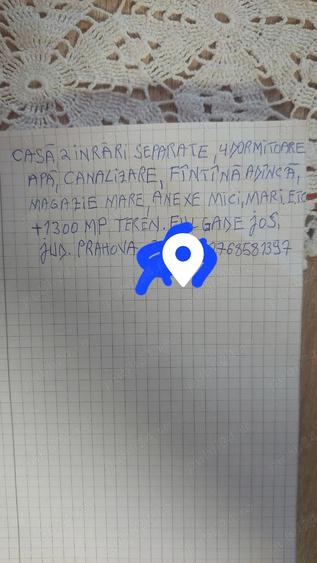 CASĂ 2 INRĂRI SEPARATE, 4 DORMITOARE
APĂ, CANALIZARE, FÎNTÎNĂ ADÎNCĂ,
MAGAZIE MARE, ANEXE MICI, MARI, ETC
+1300 MP TEREN. GADE JOS,
JUD. PRAHOVA